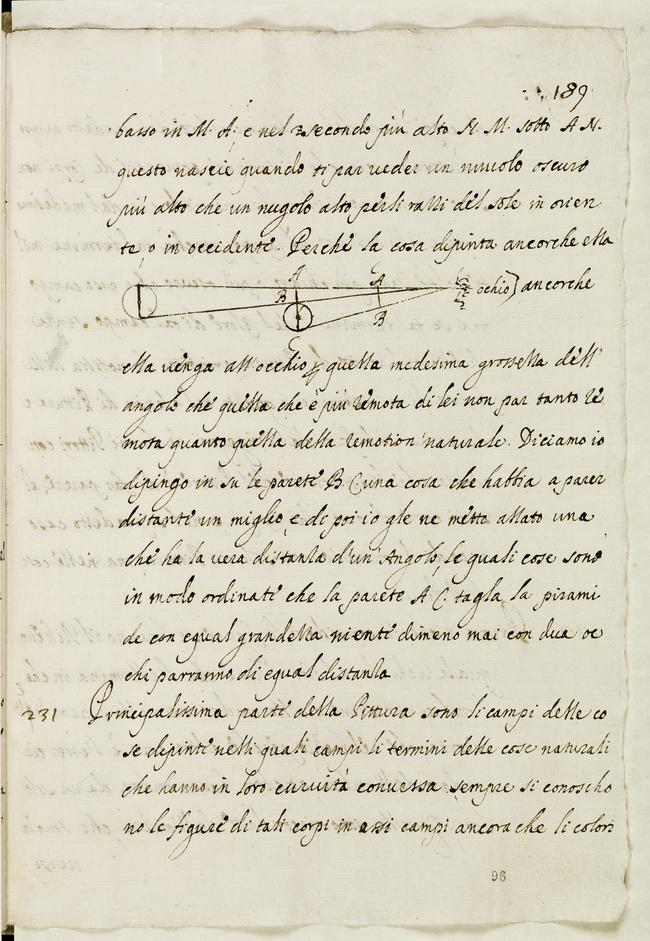 189
basso in M. A. è nel secondo più alto N. M. sotto A N.
questo nascie quando ti par veder un nuvolo oscuro
più alto che un nugolo alto perli razzi del sole in orien
te, o in occidente. Perche la cosa dipinta ancorche ella
A A
B occhio) ancorche
B
C
ella venga all'occhio p quella medesima grossezza dell'
angolo che quella che è più remota di lei non par tanto re
mota quanto quella della remotion naturale. Diciamo io
dipingo in su le parete B C una cosa che habbia a parer
distante un miglio, e di poi io gle ne metto allato una
che ha la vera distanza d'un Angolo, le quali cose sono
in modo ordinate che la parete A C. tagla la pirami
de con egual grandezza niente dimeno mai con dua oc
chi parranno di egual distanza
231 Principalissima parte della Pittura sono li campi delle co
se dipinte nelli quali campi li termini delle cose naturali
che hanno in loro curvità convessa sempre si conoscho
no le figure di tali corpi in essi campi ancora che li colori
96